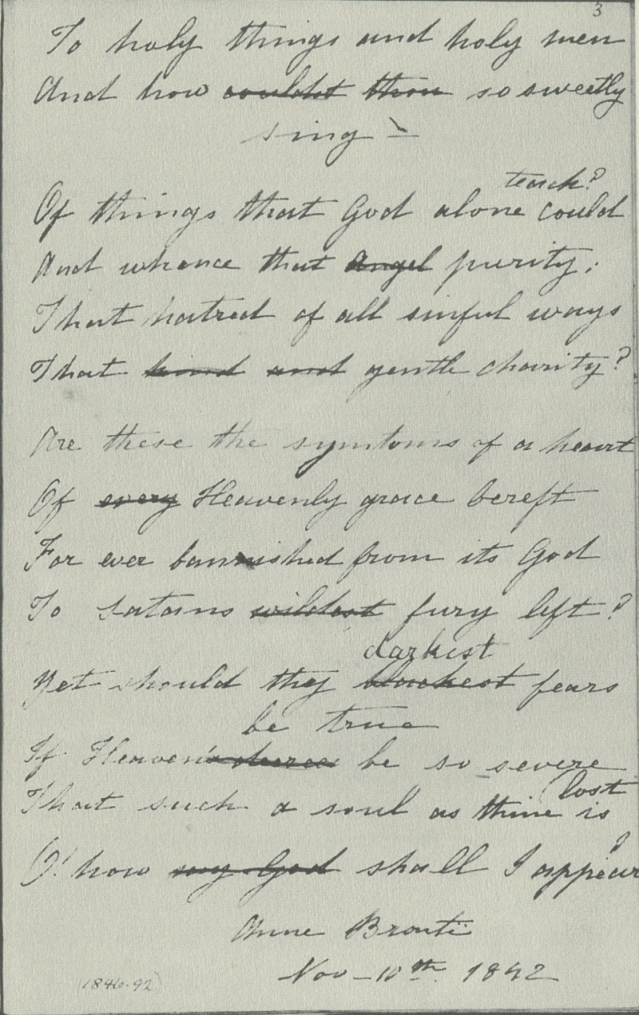 3
To holy things and holy men
And how couldst thou so sweetly
sing –
teach?
Of things that God alone could
And whence that Angel purity;
That hatred of all sinful ways
That kind and gentle charity?
Are these the symptoms of a heart
Of every Heavenly grace bereft
For ever bannished from its God
To Satans wildest fury left?
darkest
Yet should thy blackest fears
be true
If Heaven's decree be so severe
lost
That such a soul as thine is
O! how my God shall I appear?
Anne Brontë
Nov – 10th 1842
(1846-92)